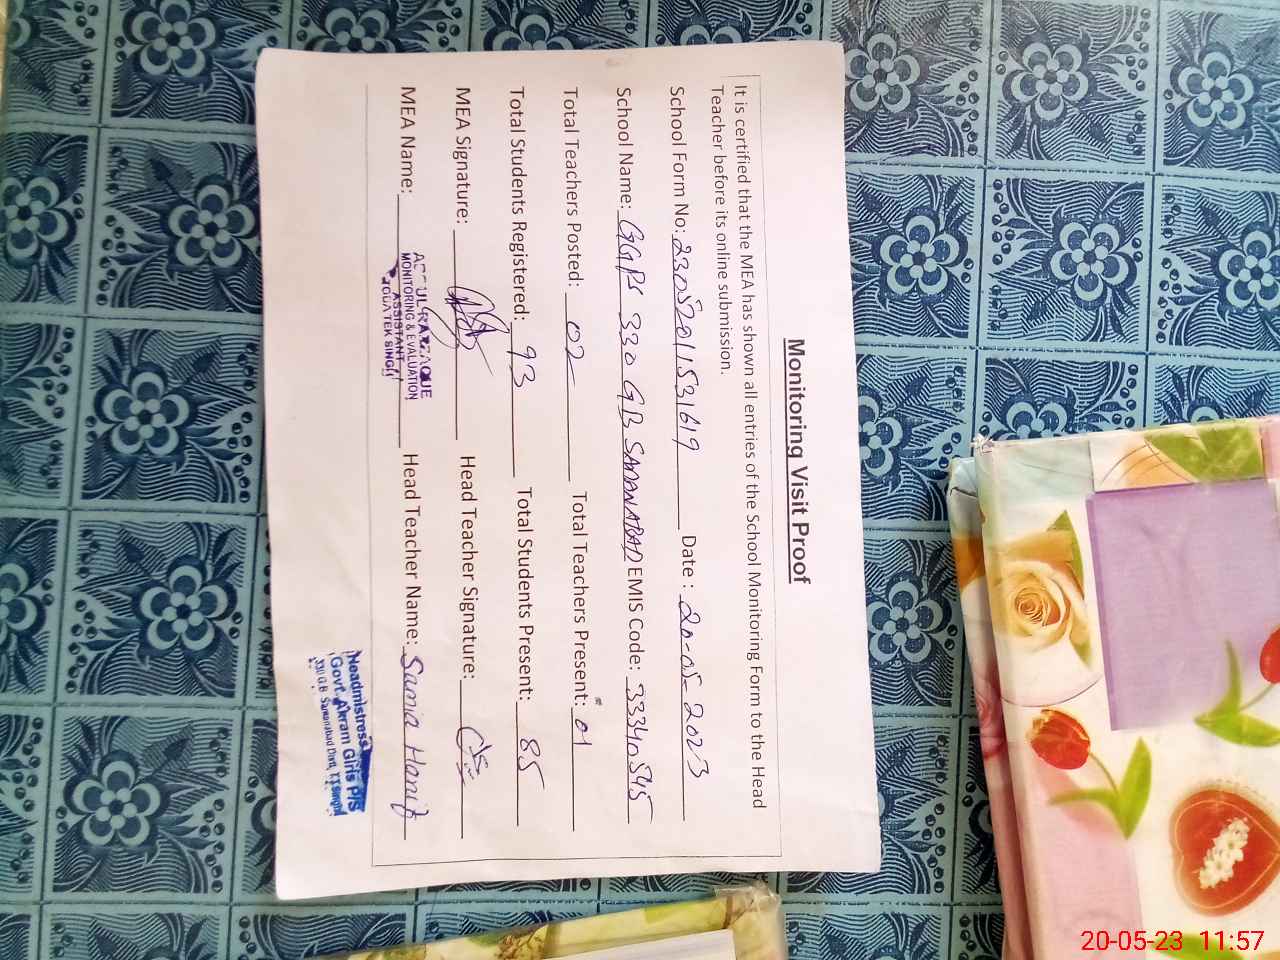 Monitoring Visit Proof
It is certified that the MEA has shown all entries of the School Monitoring Form to the Head
Teacher before its online submission.
School Form No: 23052011531619 Date : 20-05-2023
School Name: GGPS 330 GB SAMANABAD EMIS Code: 33340545
Total Teachers Posted: 02 Total Teachers Present: 01
Total Students Registered: 93 Total Students Present: 85
MEA Signature: Head Teacher Signature:
MEA Name: Head Teacher Name: Samia Hanif
MONITORING & EVALUATION
ASSISTANT
TOBA TEK SINGH
Headmistress
Govt. Akram Girls P/S
330 G.B Samanabad Distt, T.T Singh
20-05-23 11:57